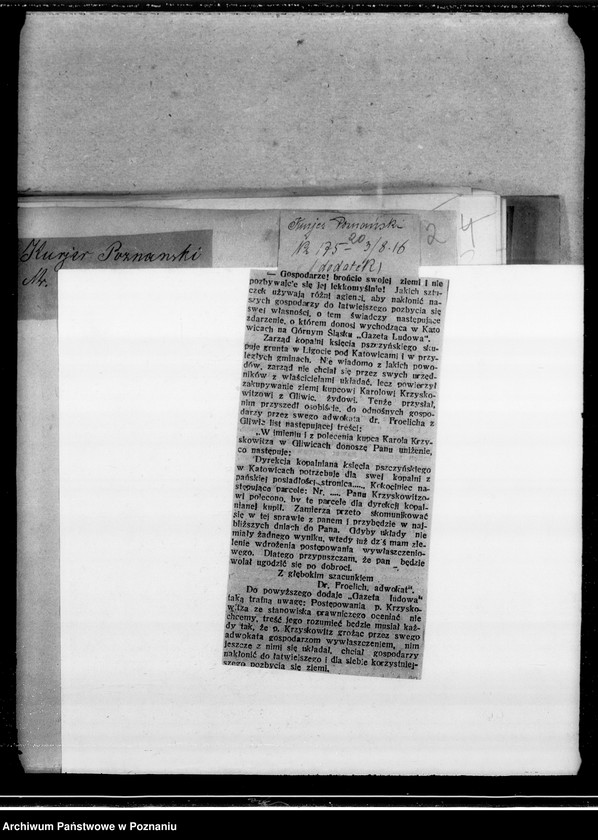 Kurjer Poznański
Nr 175 - 20 3/8-16
(dodatek)
24
Kurjer Poznanski
Nr.
— Gospodarze! brońcie swojej ziemi i nie
pozbywajcie się jej lekkomyślnie! Jakich sztu-
czek używają różni agienci, aby nakłonić na-
szych gospodarzy do łatwiejszego pozbycia się
swej własności, o tem świadczy następujące
zdarzenie, o którem donosi wychodząca w Kato
wicach na Górnym Śląsku „Gazeta Ludowa“.
Zarząd kopalni księcia pszczyńskiego sku-
puje grunta w Ligocie pod Katowicami i w przy-
ległych gminach. Nie wiadomo z jakich powo-
dów, zarząd nie chciał się przez swych urzęd-
ników z właścicielami układać, lecz powierzył
zakupywanie ziemi kupcowi Karolowi Krzysko-
witzowi z Gliwic, żydowi. Tenże przysłał,
nim przyszedł osobiście, do odnośnych gospo-
darzy przez swego adwokata dr. Froelicha z
Gliwic list następującej treści:
„W imieniu i z polecenia kupca Karola Krzy-
skowitza w Gliwicach donoszę Panu uniżenie,
co następuje:
Dyrekcja kopalniana księcia pszczyńskiego
w Katowicach potrzebuje dla swej kopalni z
pańskiej posiadłości, stronica....., Kokociniec na-
stępujące parcele: Nr. ..... Panu Krzyskowitzo-
wi polecono, by te parcele dla dyrekcji kopal-
nianej kupił. Zamierza przeto skomunikować
się w tej sprawie z panem i przybędzie w naj-
bliższych dniach do Pana. Gdyby układy nie
miały żadnego wyniku, wtedy już dziś mam zle-
lenie wdrożenia postępowania wywłaszczenio-
wego. Dlatego przypuszczam, że pan będzie
wolał ugodzić się po dobroci.
Z głębokim szacunkiem
Dr. Froelich, adwokat“.
Do powyższego dodaje „Gazeta ludowa“
taką trafną uwagę: Postępowania p. Krzysko-
witza ze stanowiska prawniczego oceniać nie
chcemy, treść jego rozumieć będzie musiał każ-
dy tak, że p. Krzyskowitz grożąc przez swego
adwokata gospodarzom wywłaszczeniem, nim
jeszcze z nimi się układał, chciał gospodarzy
nakłonić do łatwiejszego i dla siebie korzystniej-
szego pozbycia się ziemi.
Archiwum Państwowe w Poznaniu